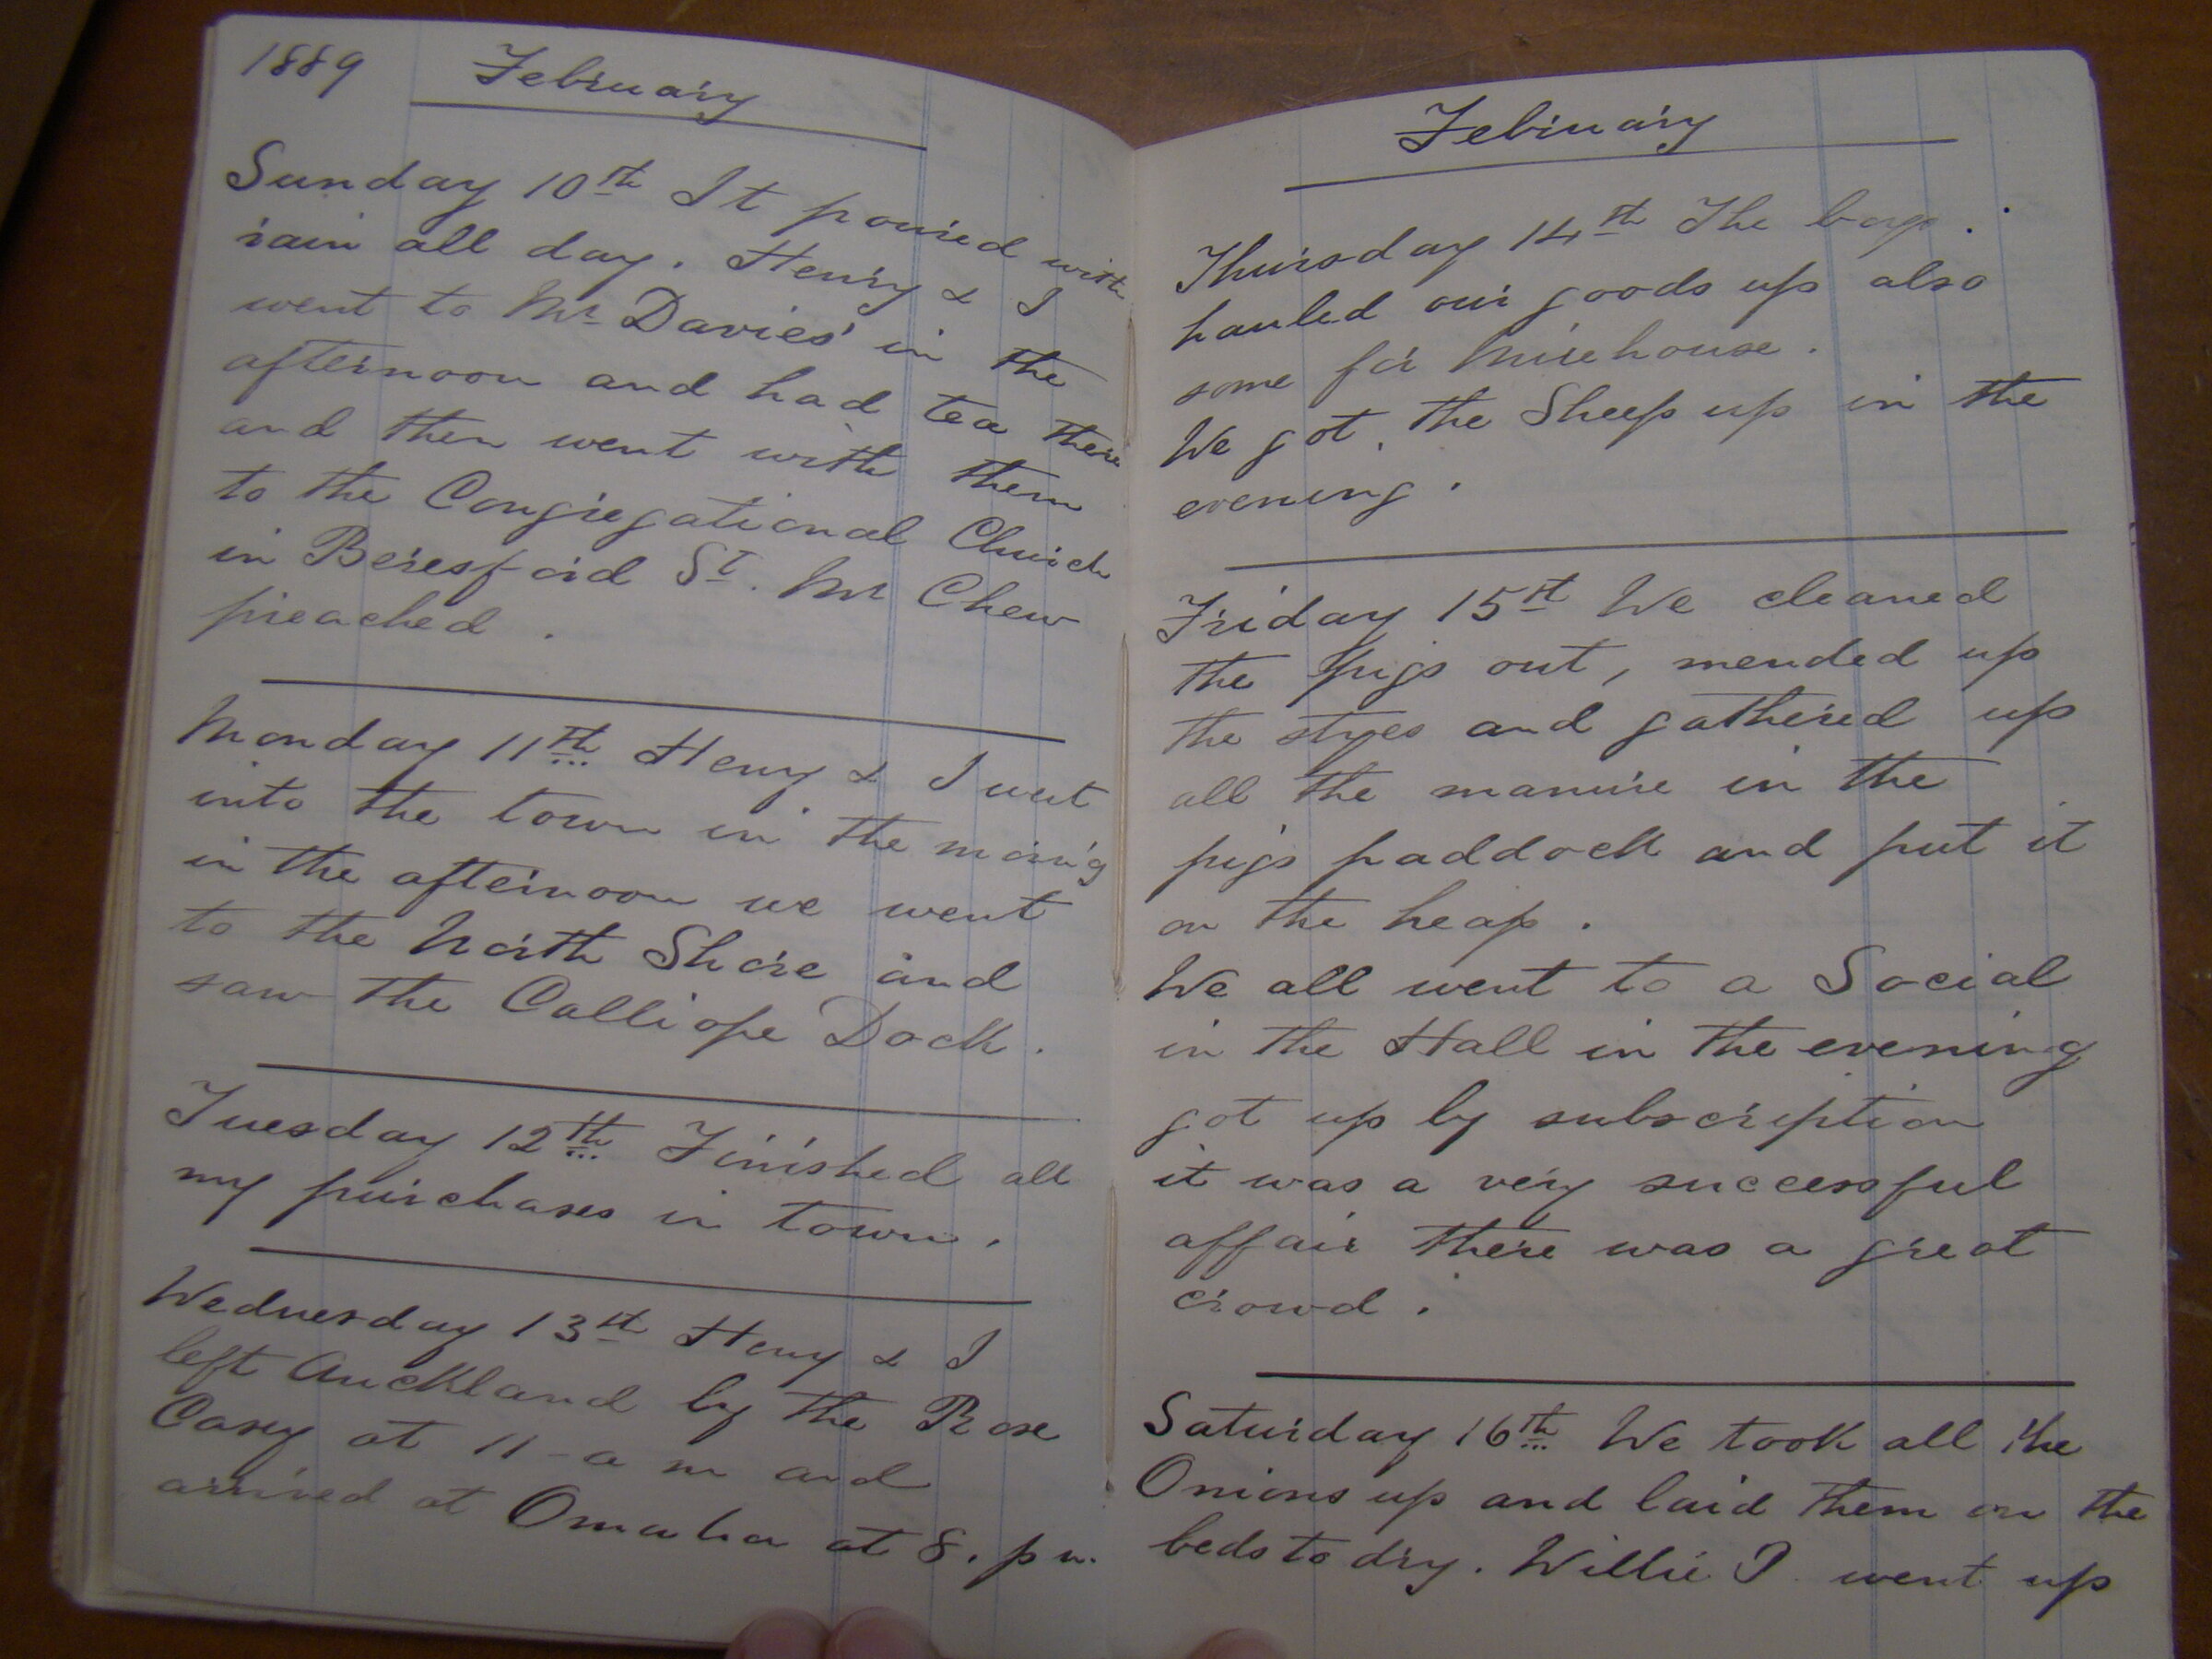 1889 February
Sunday 10th It poured with
rain all day. Henry & I
went to Mr Davies' in the
afternoon and had tea there
and then went with them
to the Congregational Church
in Beresford St. Mr Chew
preached.
Monday 11th Henry & I went
into the town in the morn'g
in the afternoon we went
to the North Shore and
saw the Calliope Dock.
Tuesday 12th Finished all
my purchases in town.
Wednesday 13th Henry & I
left Auckland by the Rose
Casey at 11 a m and
arrived at Omaha at 8. p m.
February
Thursday 14th The boys
hauled our goods up also
some for Mirehouse.
We got the Sheep up in the
evening.
Friday 15th We cleaned
the pigs out, mended up
the styes and gathered up
all the manure in the
pigs paddock and put it
on the heap.
We all went to a Social
in the Hall in the evening
got up by subscription
it was a very successful
affair there was a great
crowd.
Saturday 16th We took all the
Onions up and laid them on the
beds to dry. Willie went up